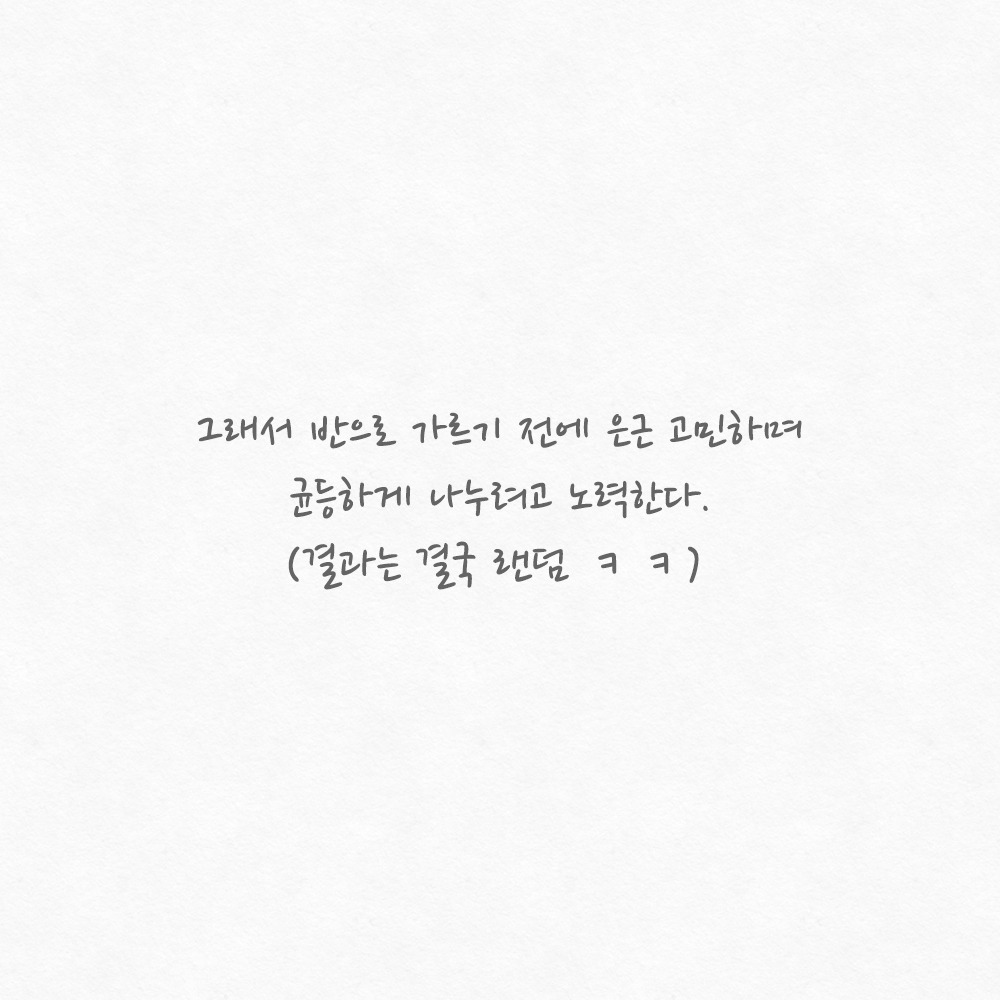 그래서 반으로 가르기 전에 은근 고민하며
균등하게 나누려고 노력한다.
(결과는 결국 랜덤 ㅋ ㅋ)